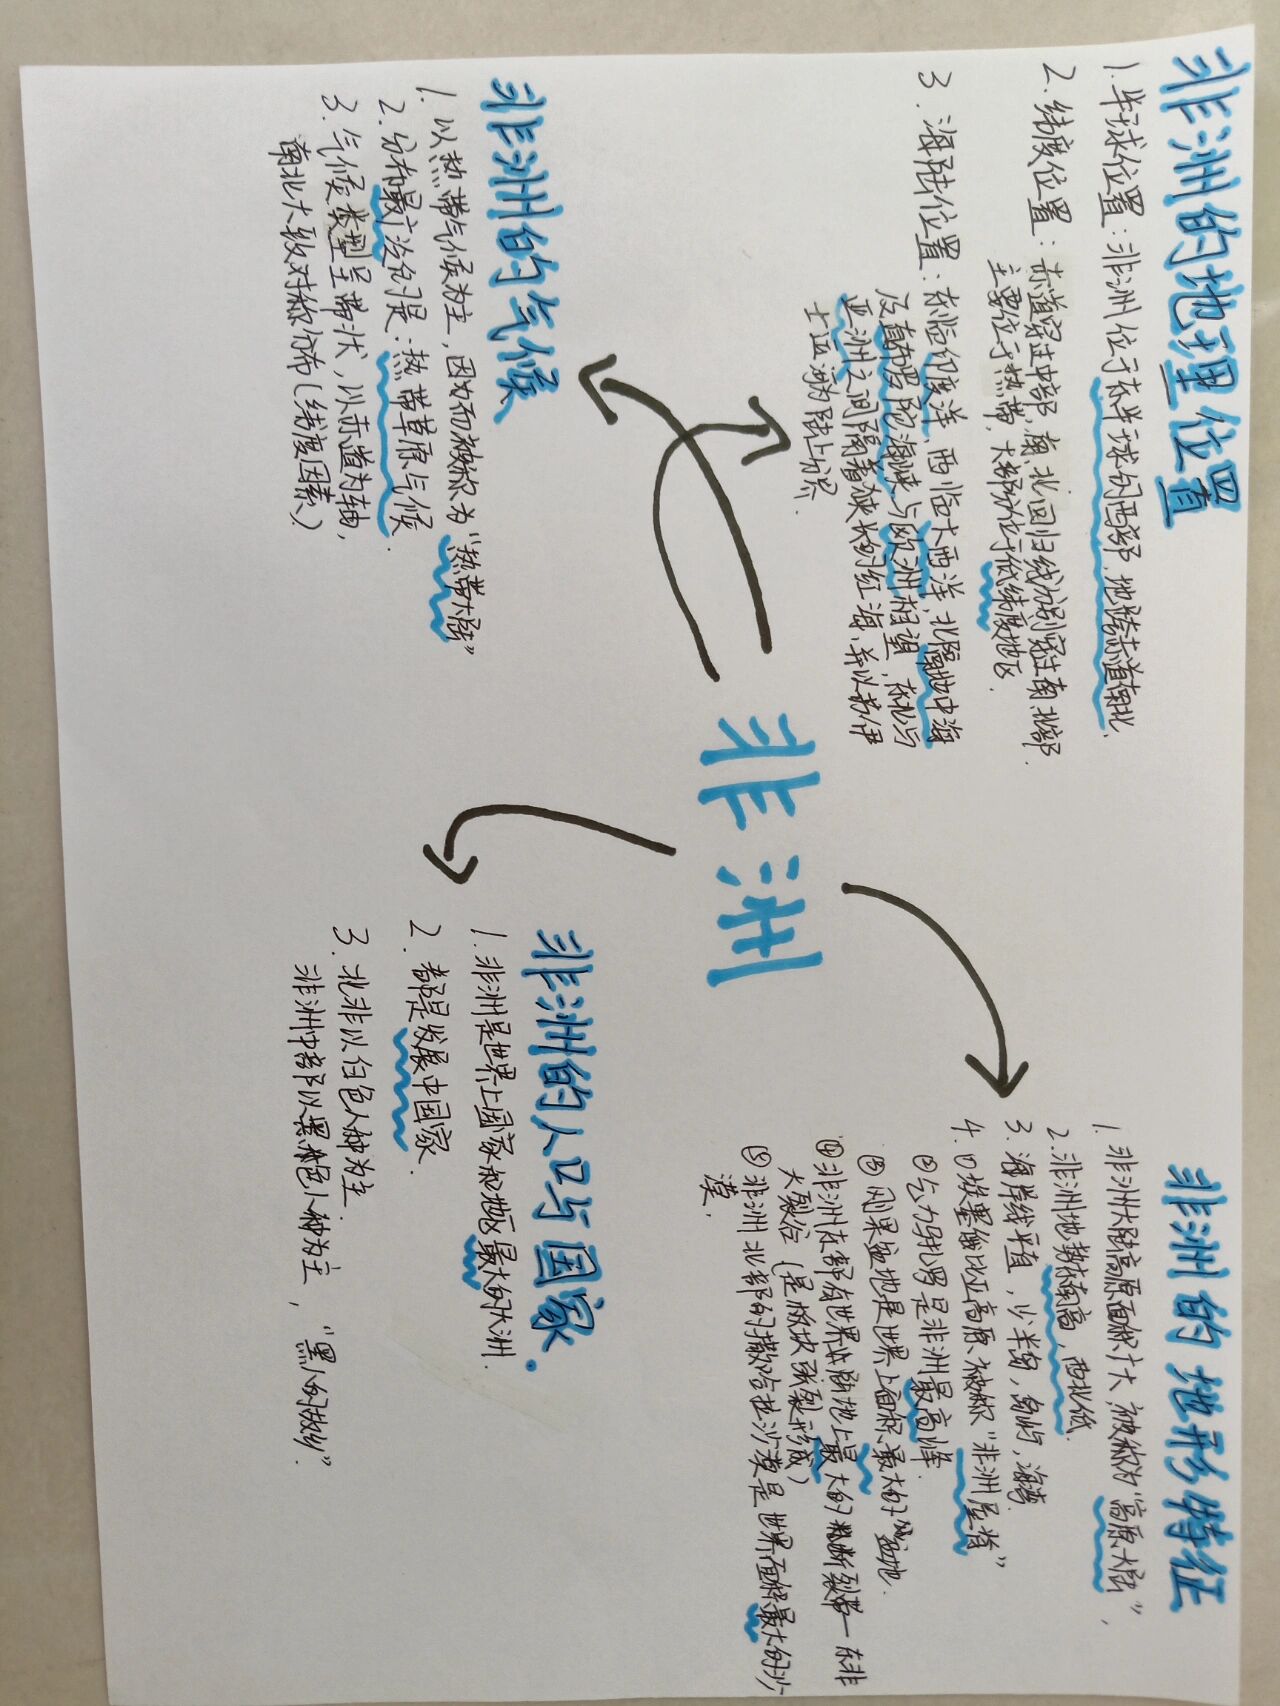 非洲的地理位置
1. 半球位置：非洲位于东半球的西部，地跨赤道南北.
2. 纬度位置：赤道穿过中部，南、北回归线分别穿过南北部.
主要位于热带，大部分位于低纬度地区.
3. 海陆位置：东临印度洋，西临大西洋，北隔地中海
及直布罗陀海峡与欧洲相望，东北与
亚洲之间隔着狭长的红海，并以苏伊
士运河为陆上分界
非洲的气候
1. 以热带气候为主，因而被称为“热带大陆”
2. 分布最广泛的是：热带草原气候.
3. 气候类型呈带状，以赤道为轴，
南北大致对称分布（纬度因素）
非洲
非洲的地形特征
1. 非洲大陆高原面积广大，被称为“高原大陆”，
2. 非洲地势东南高，西北低.
3. 海岸线平直，少半岛，岛屿，海湾
4. ①埃塞俄比亚高原被称“非洲屋脊”
②乞力马扎罗是非洲最高峰.
③刚果盆地是世界上面积最大的盆地.
④非洲东部有世界陆地上最大的断裂带—东非
大裂谷（是板块张裂形成）
⑤非洲北部的撒哈拉沙漠是世界面积最大的沙
漠.
非洲的人口与国家.
1. 非洲是世界上国家和地区最大的大洲.
2. 都是发展中国家.
3. 北非以白色人种为主.
非洲中部以黑色人种为主，“黑人的故乡”.